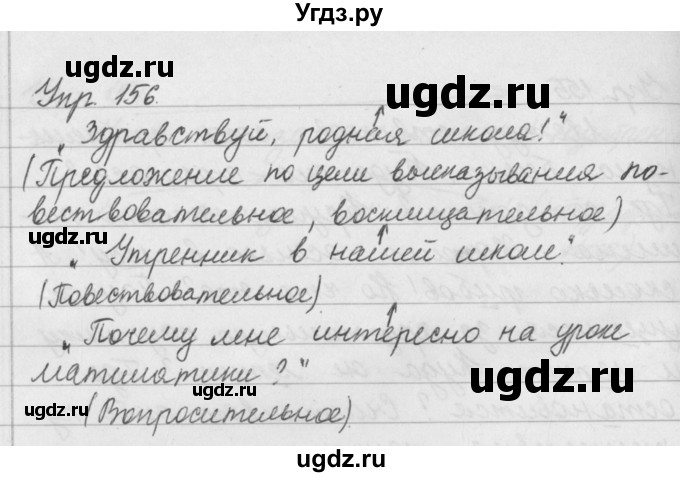 Угдз.ру
ugdz.ru
ugdz.ru
Упр. 156.
„Здравствуй, родная школа!"
ugdz.ru
(Предложение по цели высказывания по-
вествовательное, восклицательное)
ugdz.ru
ugdz.ru
„Утренник в нашей школе."
(Повествовательное)
„Почему мне интересно на уроке
математики?"
ugdz.ru
ugdz.ru
(Вопросительное)
ugdz.ru
ugdz.ru